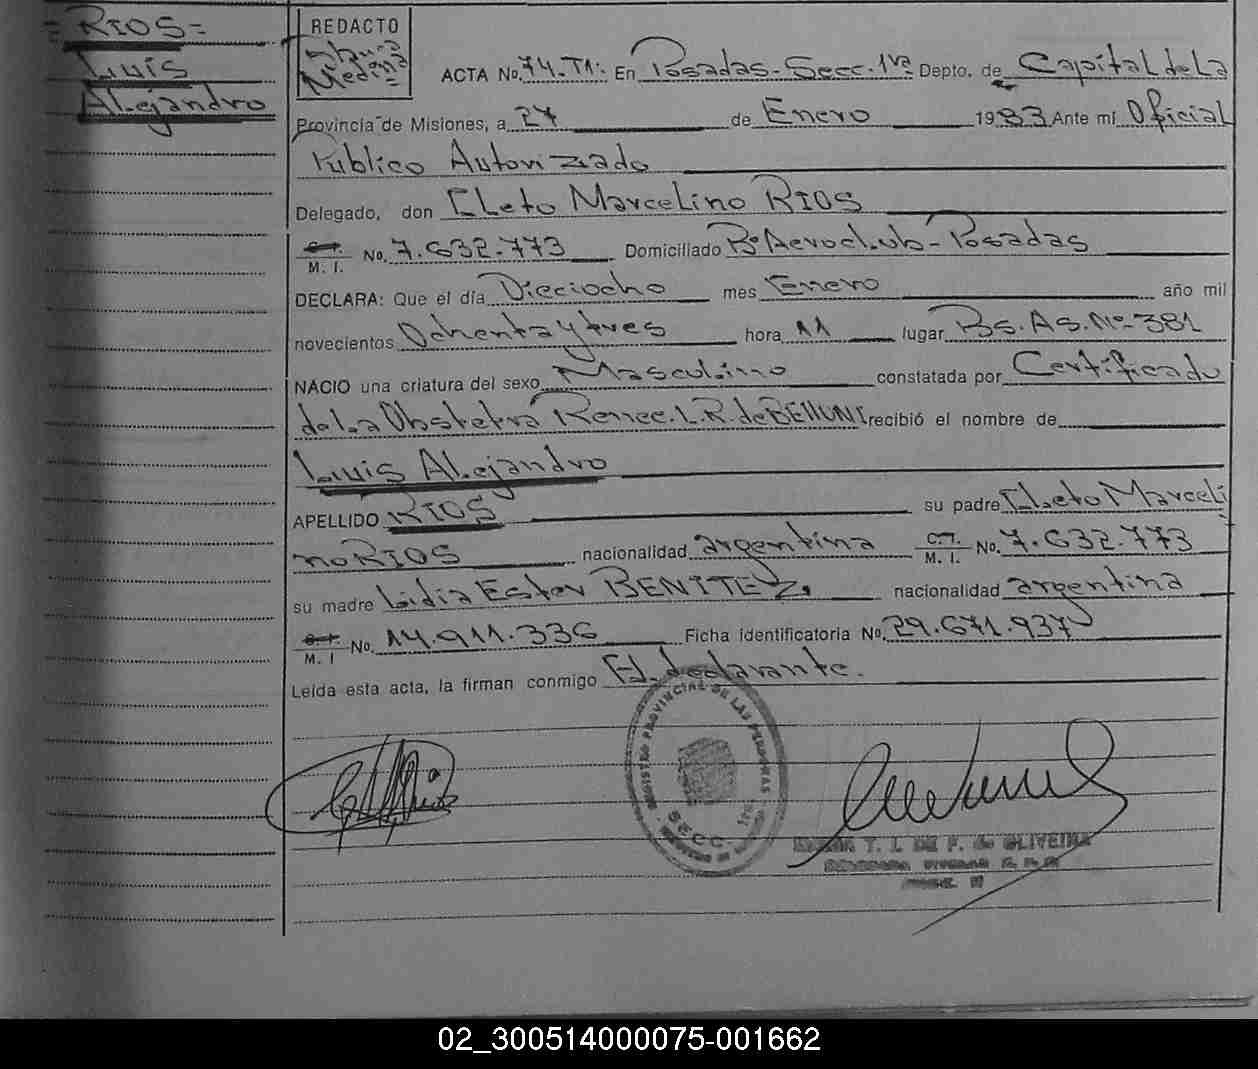 =RIOS=
Luis
Alejandro
REDACTO
Medina
ACTA No. 74-T1: En Posadas-Secc.1ra Depto. de Capital de La
Provincia de Misiones, a 27 de Enero 1983 Ante mi Oficial
Publico Autorizado
Delegado, don Cleto Marcelino RIOS
C.I. M. I. No. 7.632.773 Domiciliado Bº Aeroclub-Posadas
DECLARA: Que el día Dieciocho mes Enero año mil
novecientos Ochenta y tres hora 11 lugar Bs.As.Nº-381
NACIO una criatura del sexo Masculino constatada por Certificado
de La Obstetra Renee.L.R.de BELLONI recibió el nombre de
Luis Alejandro
APELLIDO RIOS su padre Cleto Marceli
no RIOS nacionalidad argentina C.I. M. I. No. 7.632.773
su madre Lidia Ester BENITEZ. nacionalidad argentina
C.I. M. I No. 14.911.336 Ficha identificatoria No. 29.671.937
Leída esta acta, la firman conmigo El declarante.
REGISTRO PROVINCIAL DE LAS PERSONAS
SECC. 1ra.
T. I. DE F. de OLIVEIRA
02_300514000075-001662